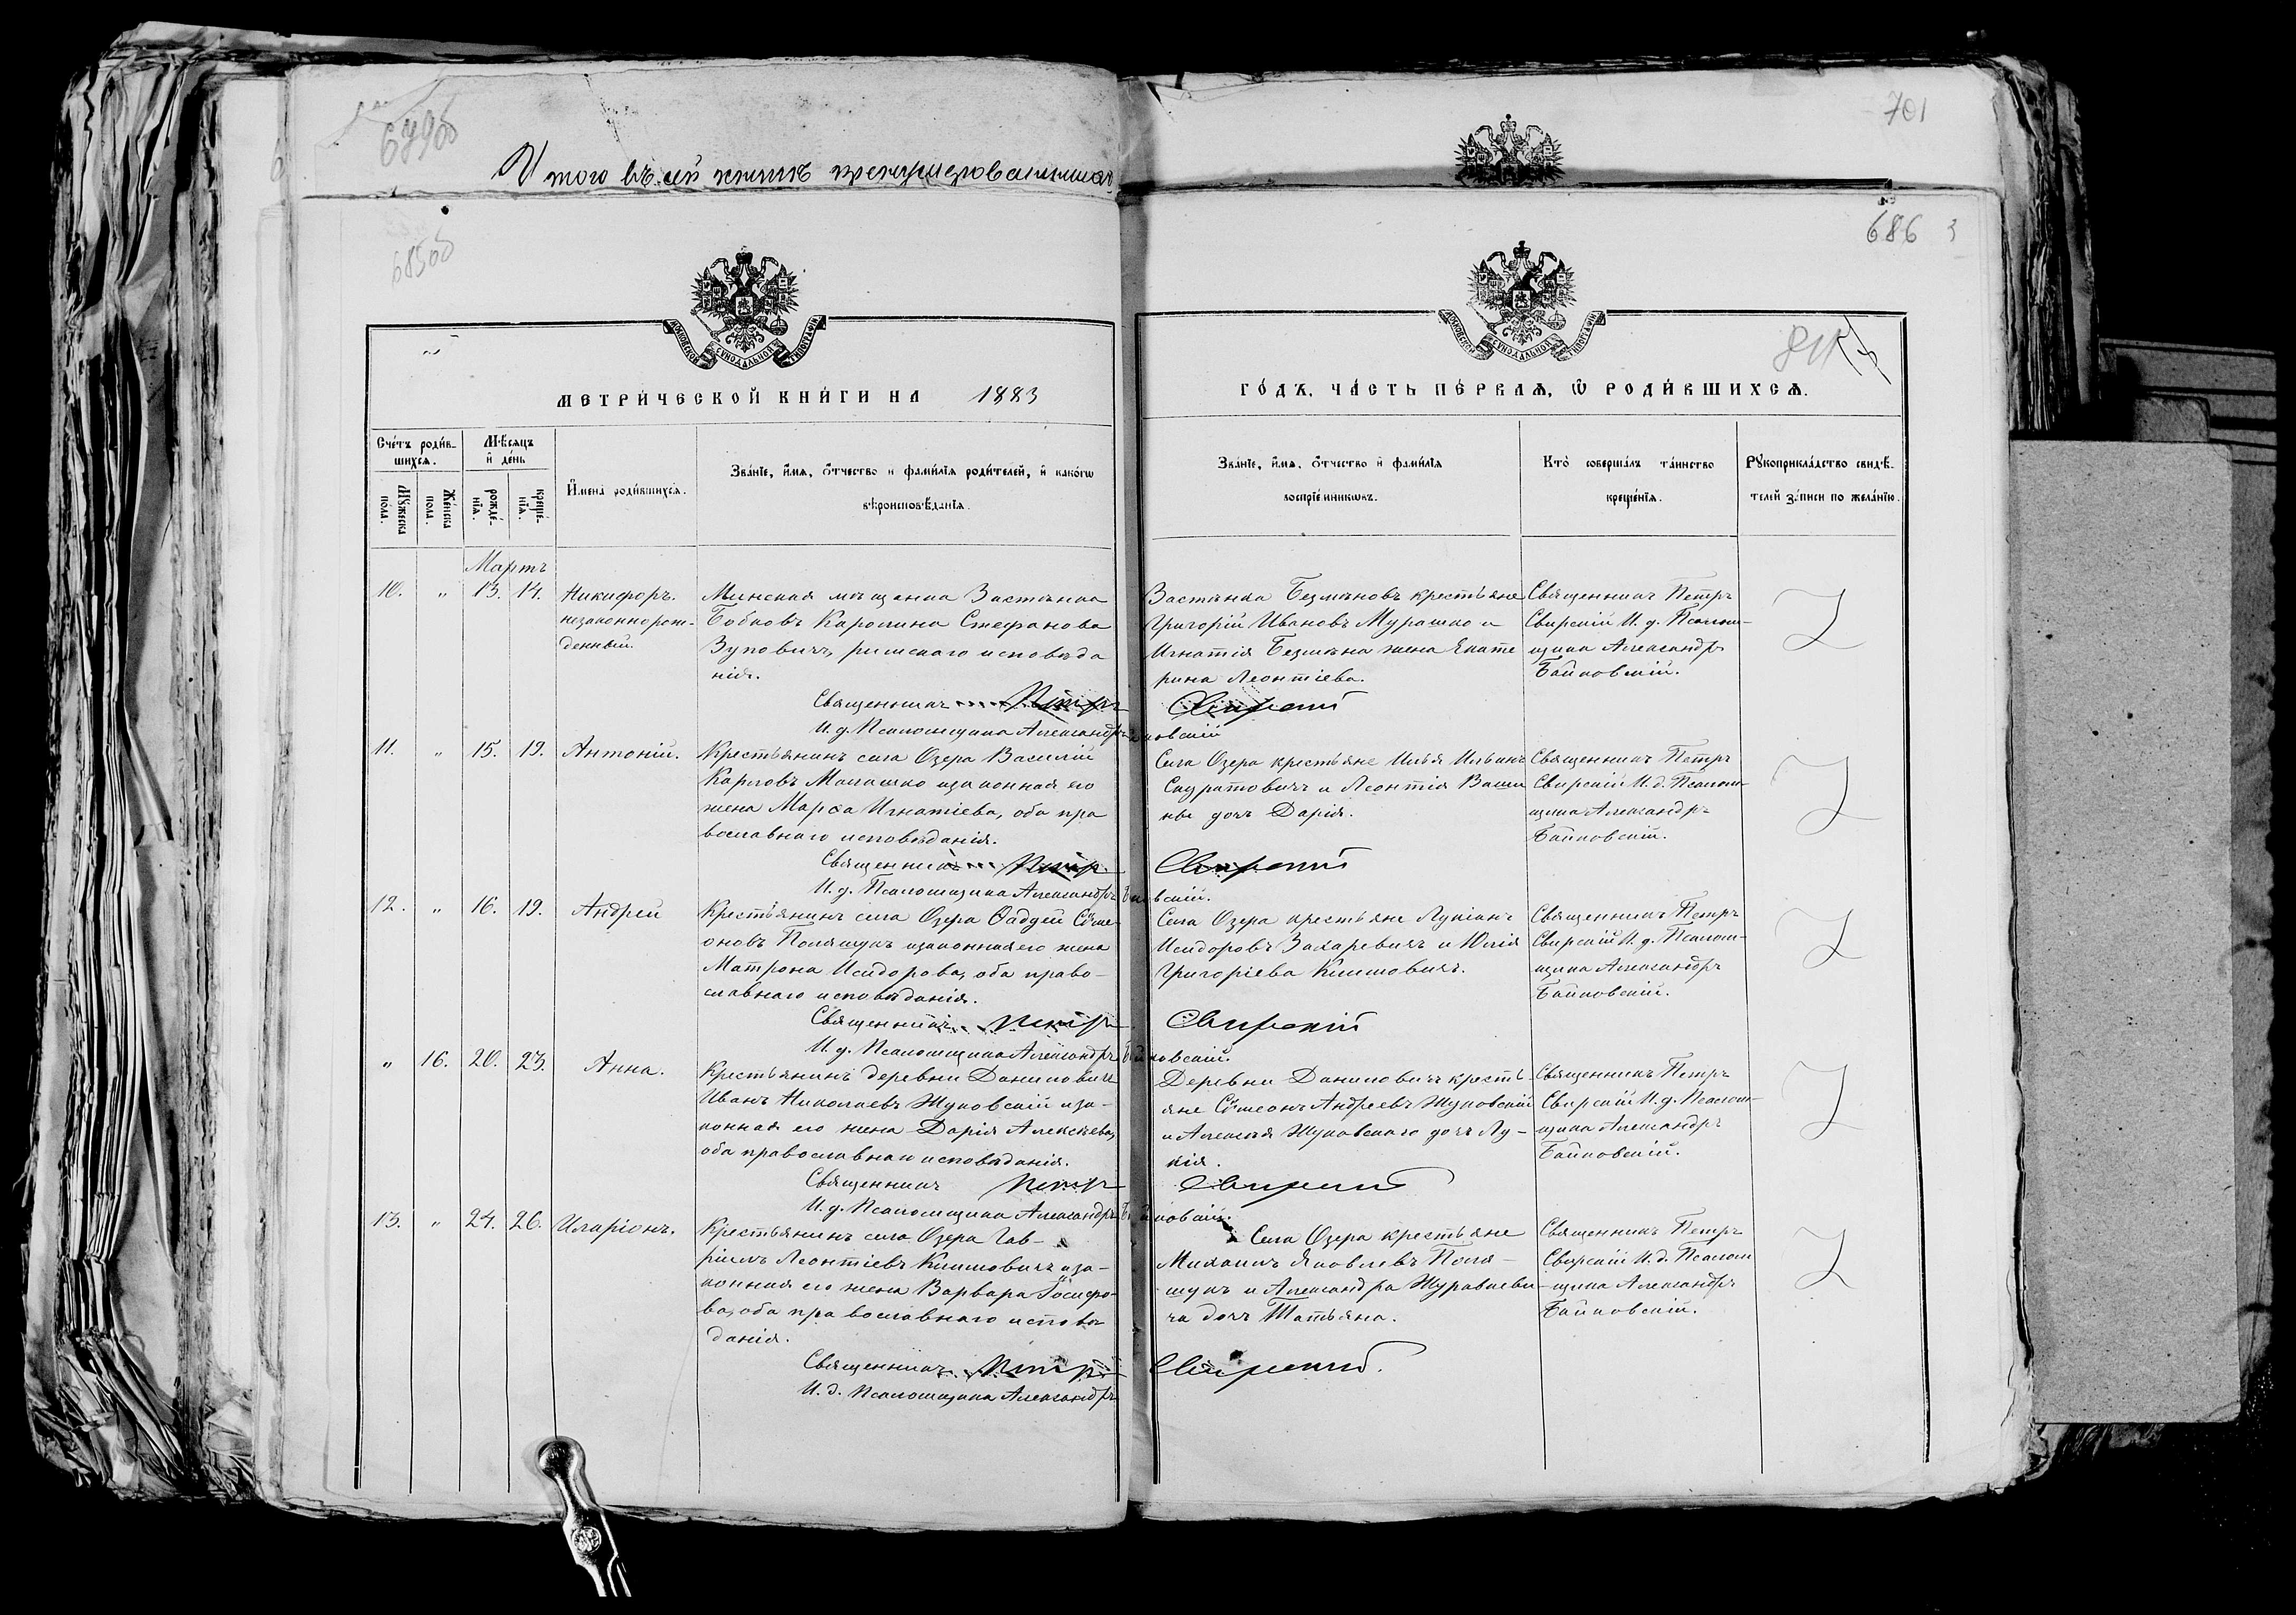 701
Итого въ сей книгѣ
686
1883
МЕТРИ́ЧЕСКОЙ КНИ́ГИ НА 1883 ГО́ДЪ, ЧА́СТЬ ПЕ́РВАѦ, Ѿ РОДИ́ВШИХСѦ.
Сче́тъ роди́в-
шихсѧ.
Мѣ́сѧцъ
и҆ де́нь
Мꙋ́жеска
пола.
Же́нска
пола.
рожде́-
нїѧ.
креще́-
нїѧ.
И҆мена̀ роди́вшихсѧ.
Зва́нїе, и҆́мѧ, ѻ҆́тчество и҆ фами́лїѧ роди́телей, и҆ како́гѡ
вѣроисповѣ́данїѧ.
Зва́нїе, и҆́мѧ, ѻ҆́тчество и҆ фами́лїѧ
воспрїе́мникѡвъ.
Кто̀ соверша́лъ та́инство
креще́нїѧ.
Рꙋкоприкла́дство свидѣ́-
телей за́писи по жела́нїю.
Мартъ
10. „ 13. 14. Никифоръ.
незаконнорож-
денный.
Минская мѣщанка Застѣнка
Бобковъ Каролина Стефанова
Зуповичъ, римскаго исповѣда
нія.
Застѣнка Безмѣновъ крестьяне
Григорій Ивановъ Мурашко и
Игнатія Безмѣна жена Екате
рина Леонтіева.
Священникъ Петръ
Свирскій И. д. Псалом-
щика Александръ
Байковскій.
Священникъ Петръ Свирскій
И. д. Псаломщика Александръ Байковскій
11. „ 15. 19. Антоній.
Крестьянинъ села Озера Василій
Карповъ Малашко изаконная его
жена Марѳа Игнатіева, оба пра
вославнаго исповѣданія.
Села Озера крестьяне Илья Ильинъ
Скуратовичъ и Леонтія Васи
дочь Дарія.
Священникъ Петръ
Свирскій И. д. Псалом-
щика Александръ
Байковскій.
Священникъ Петръ Свирскій
И. д. Псаломщика Александръ Байковскій.
12. „ 16. 19. Андрей
Крестьянинъ села Озера Ѳаддей Сѵме-
оновъ Полящукъ изаконная его жена
Матрона Исидорова, оба право-
славнаго исповѣданія.
Села Озера крестьяне Лукіанъ
Исидоровъ Захаревичъ и Юлія
Григоріева Климовичъ.
Священникъ Петръ
Свирскій И. д. Псалом-
щика Александръ
Байковскій.
Священникъ Петръ Свирскій
И. д. Псаломщика Александръ Байковскій.
„ 16. 20. 23. Анна.
Крестьянинъ деревни Даниловичъ
Иванъ Николаевъ Жуковскій иза-
конная его жена Дарія Алексѣева,
оба православнаго исповѣданія.
Деревни Даниловичъ кресть-
яне Сѵмеонъ Андреевъ Жуковскій
и Алексѣя Жуковскаго дочь Лу-
кія.
Священникъ Петръ
Свирскій И. д. Псалом-
щика Александръ
Байковскій.
Священникъ Петръ Свирскій
И. д. Псаломщика Александръ Байковскій.
13. „ 24. 26. Иларіонъ.
Крестьянинъ села Озера Гав-
ріилъ Леонтіевъ Климовичъ иза-
конная его жена Варвара Іосифо-
ва, оба православнаго исповѣ
данія.
Села Озера крестьяне
Михаилъ Яковлевъ Поля-
щукъ и Александра Журавлеви-
ча дочь Татьяна.
Священникъ Петръ
Свирскій И. д. Псалом
-щика Александръ
Байковскій.
Священникъ Петръ Свирскій.
И. д. Псаломщика Александръ